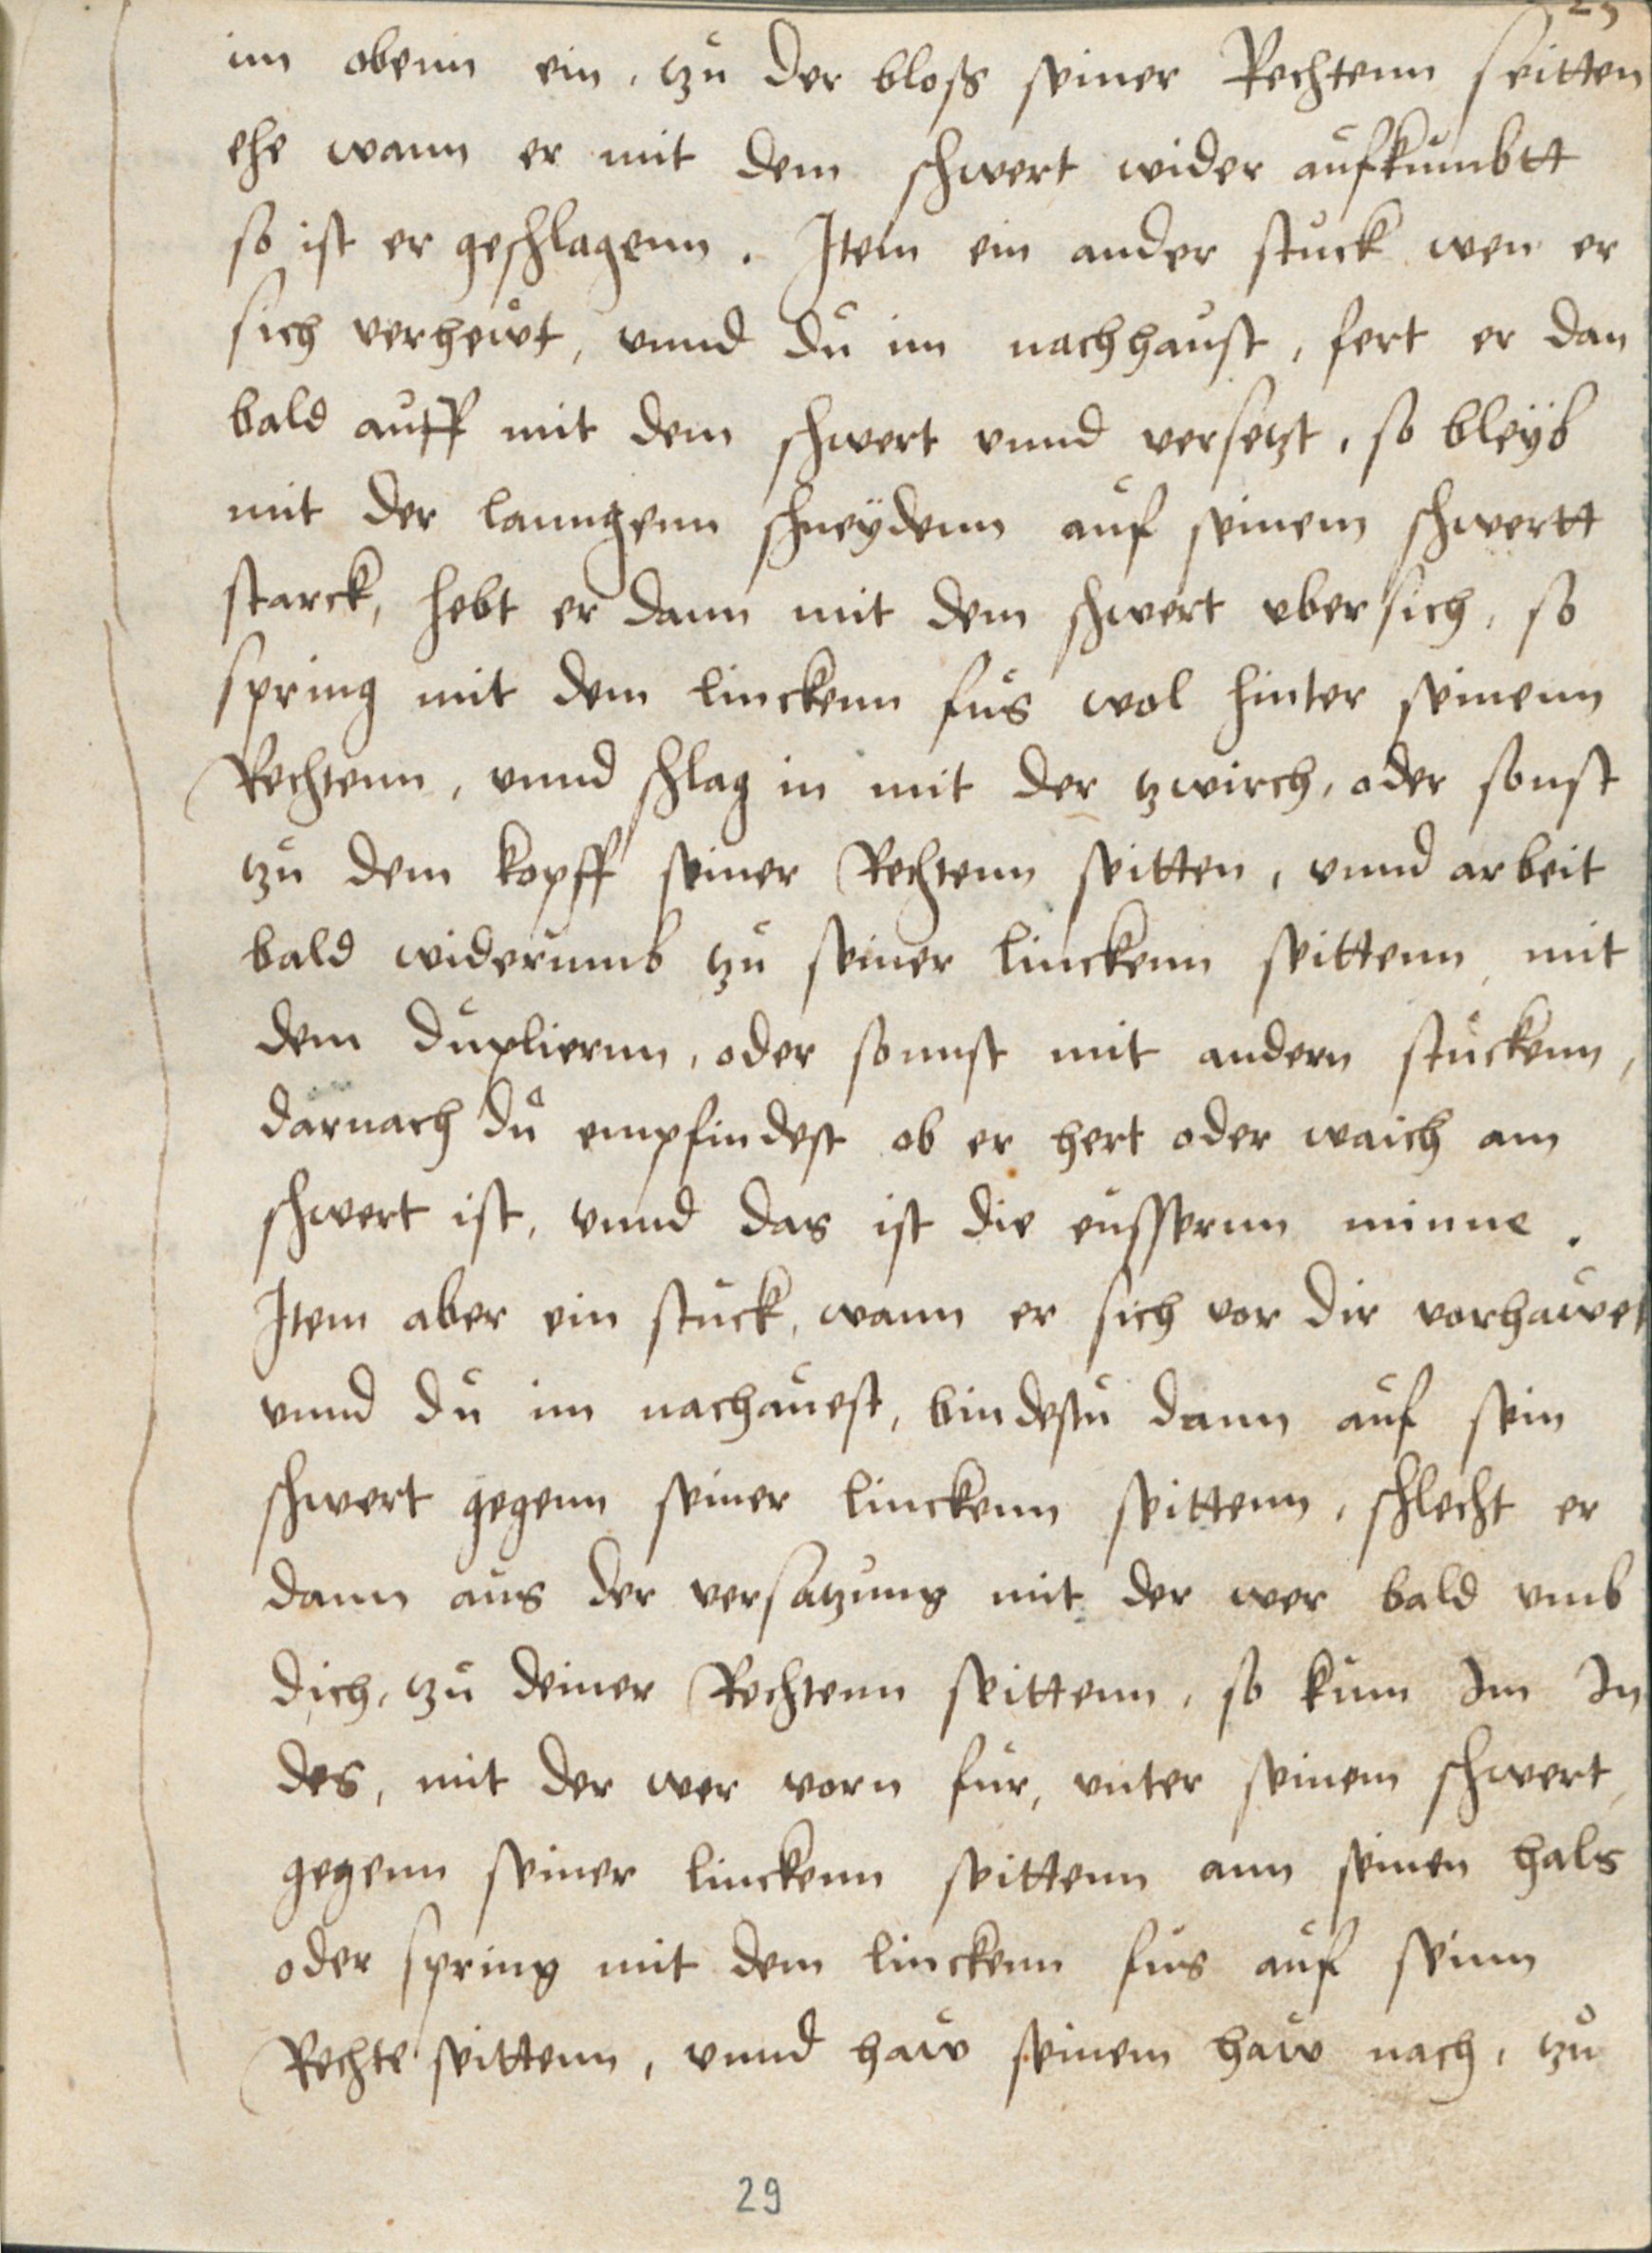 im obenn ein, tzu der bloß seiner Rechtenn seitten
ehe wann er mit dem schwert wider aufkumbtt
so ist er geschlagenn. Item ein ander stuck wen er
sich verhewt, vnnd du im nachhaust, fert er dan
bald auff mit dem schwert vnnd versetzt, so bleÿb
mit der lanngenn schneÿdenn auf seinem schwertt
starck, hebt er dann mit dem schwert vber sich, so
spring mit dem linckenn fus wol hinter seinenn
Rechtenn, vnnd schlag in mit der tzwirch, oder sonst
tzu dem kopff seiner Rechtenn seitten, vnnd arbeit
bald widerumb tzu seiner linckenn seittenn mit
dem dupliernn, oder sonnst mit andern stuckenn,
darnach du empfindest ob er hert oder waich am
schwert ist, vnnd das ist die eussernn minne.
Item aber ein stuck, wann er sich vor dir vorhawet
vnnd du im nachauest, bindestu dann auf sein
schwert gegenn seiner linckenn seittenn, schlecht er
dann aus der versatzung mit der wer bald vmb
dich, tzu deiner Rechtenn seittenn, so kum Im In
des, mit der wer vorn fur, vnter seinem schwert,
gegenn seiner linckenn seittenn ann seinen hals
oder spring mit dem linckenn fus auf seinn
Rechte seittenn, vnnd haw seinem haw nach, tzu
29